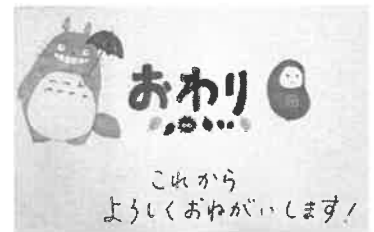 おわり
これから
よろしくおねがいします!